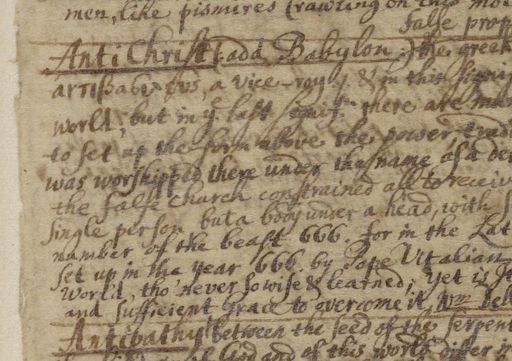 men, like pismires crawling on this mole
false prop
Anti Christ (add Babylon) the greek
a vice-roy & in this signi
world, but in ye last there are man
to set up the form above the power, tradi
was worshipped there under the name of a de
the false church constrained all to receiv
single person but a body under a head, with
number of the beast 666. for in the Lat
set up in the year 666 by Pope Vitalian
World, tho' never so wise & learned, Yet is
and sufficient grace to overcome it
Antipathy between the seed of the serpent
God and of this world